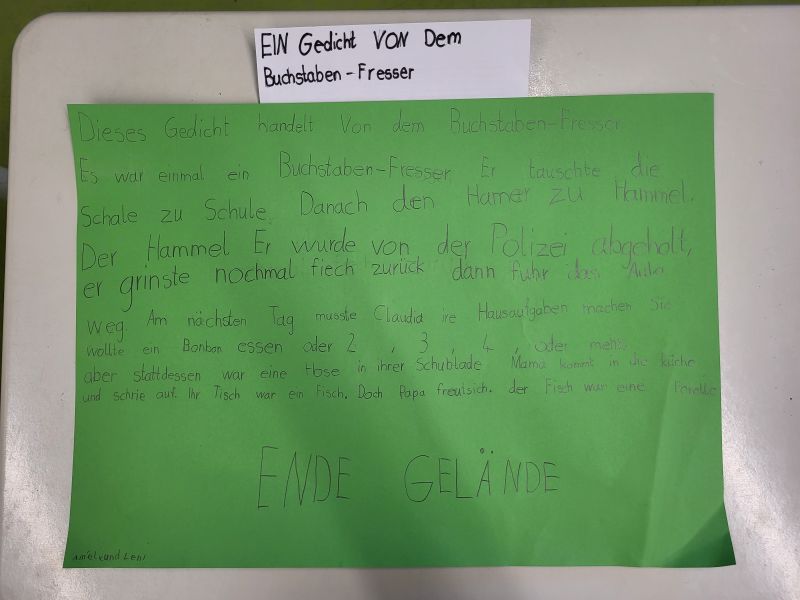 EIN Gedicht VON Dem
Buchstaben-Fresser
Dieses Gedicht handelt Von dem Buchstaben-Fresser
Es war einmal ein Buchstaben-Fresser. Er tauschte die
Schale zu Schule. Danach den Hamer zu Hammel.
Der Hammel Er wurde von der Polizei abgeholt,
er grinste nochmal fiech zurück dann fuhr das Auto
weg. Am nächsten Tag musste Claudia ire Hausaufgaben machen Sie
wollte ein Bonbon essen oder 2, 3, 4, oder mehr,
aber stattdessen war eine Hose in ihrer Schublade Mama kommt in die küche
und schrie auf. Ihr Tisch war ein Fisch. Doch Papa freutsich. der Fisch war eine Forelle
ENDE GELÄNDE
und Leni